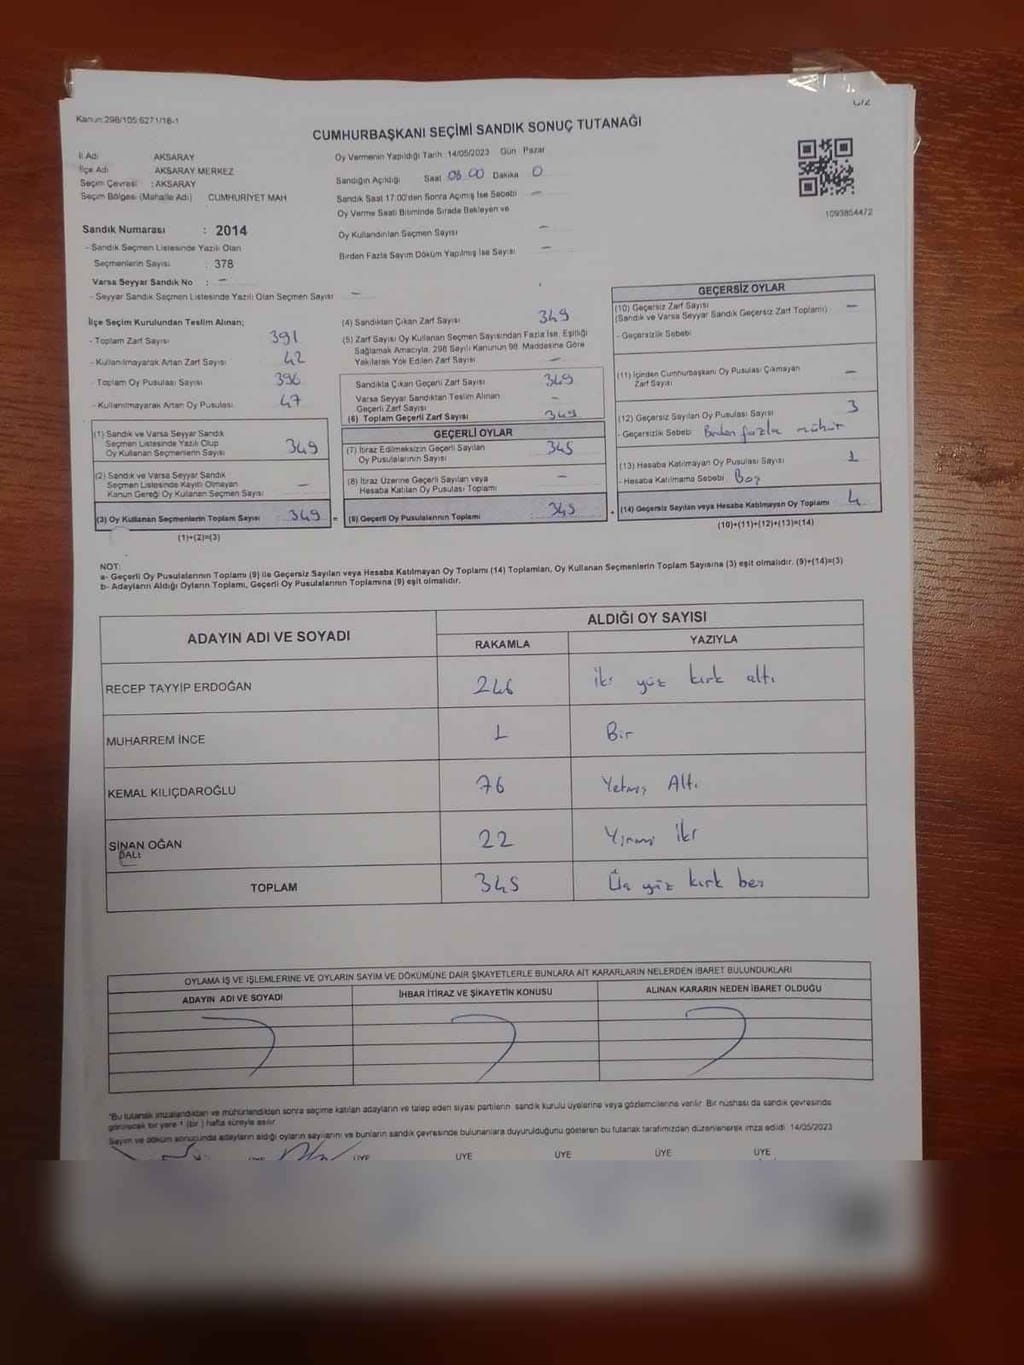 Kanun:298/105:6271/18-1
CUMHURBAŞKANI SEÇİMİ SANDIK SONUÇ TUTANAĞI
İl Adı AKSARAY
İlçe Adı AKSARAY MERKEZ
Seçim Çevresi : AKSARAY
Seçim Bölgesi (Mahalle Adı) CUMHURİYET MAH
Oy Vermenin Yapıldığı Tarih 14/05/2023 Gün Pazar
Sandığın Açıldığı Saat 08 00 Dakika 0
Sandık Saat 17:00'den Sonra Açımış İse Sebebi –
Oy Verme Saati Bitiminde Sırada Bekleyen ve
Oy Kullandırılan Seçmen Sayısı –
Birden Fazla Sayım Döküm Yapılmış İse Sayısı –
1093854472
Sandık Numarası : 2014
- Sandık Seçmen Listesinde Yazılı Olan
Seçmenlerin Sayısı : 378
Varsa Seyyar Sandık No : –
- Seyyar Sandık Seçmen Listesinde Yazılı Olan Seçmen Sayısı –
İlçe Seçim Kurulundan Teslim Alınan;
- Toplam Zarf Sayısı 391
- Kullanılmayarak Artan Zarf Sayısı 42
- Toplam Oy Pusulası Sayısı 396
- Kullanılmayarak Artan Oy Pusulası 47
(1) Sandık ve Varsa Seyyar Sandık
Seçmen Listesinde Yazılı Olup
Oy Kullanan Seçmenlerin Sayısı 349
(2) Sandık ve Varsa Seyyar Sandık
Seçmen Listesinde Kayıtlı Olmayan
Kanun Gereği Oy Kullanan Seçmen Sayısı –
(3) Oy Kullanan Seçmenlerin Toplam Sayısı 349
(1)+(2)=(3)
(4) Sandıktan Çıkan Zarf Sayısı 349
(5) Zarf Sayısı Oy Kullanan Seçmen Sayısından Fazla İse, Eşitliği
Sağlamak Amacıyla, 298 Sayılı Kanunun 98. Maddesine Göre
Yakılarak Yok Edilen Zarf Sayısı –
Sandıkta Çıkan Geçerli Zarf Sayısı 349
Varsa Seyyar Sandıktan Teslim Alınan
Geçerli Zarf Sayısı –
(6) Toplam Geçerli Zarf Sayısı 349
GEÇERLİ OYLAR
(7) İtiraz Edilmeksizin Geçerli Sayılan
Oy Pusulalarının Sayısı 345
(8) İtiraz Üzerine Geçerli Sayılan veya
Hesaba Katılan Oy Pusulası Toplamı –
(9) Geçerli Oy Pusulalarının Toplamı 345
GEÇERSİZ OYLAR
(10) Geçersiz Zarf Sayısı –
(Sandık ve Varsa Seyyar Sandık Geçersiz Zarf Toplamı)
- Geçersizlik Sebebi
(11) İçinden Cumhurbaşkanı Oy Pusulası Çıkmayan
Zarf Sayısı –
(12) Geçersiz Sayılan Oy Pusulası Sayısı 3
- Geçersizlik Sebebi Birden fazla mühür
(13) Hesaba Katılmayan Oy Pusulası Sayısı 1
- Hesaba Katılmama Sebebi Boş
(14) Geçersiz Sayılan veya Hesaba Katılmayan Oy Toplamı 4
(10)+(11)+(12)+(13)=(14)
NOT:
a- Geçerli Oy Pusulalarının Toplamı (9) ile Geçersiz Sayılan veya Hesaba Katılmayan Oy Toplamı (14) Toplamları, Oy Kullanan Seçmenlerin Toplam Sayısına (3) eşit olmalıdır. (9)+(14)=(3)
b- Adayların Aldığı Oyların Toplamı, Geçerli Oy Pusulalarının Toplamına (9) eşit olmalıdır.
ADAYIN ADI VE SOYADI
ALDIĞI OY SAYISI
RAKAMLA YAZIYLA
RECEP TAYYİP ERDOĞAN 246 iki yüz kırk altı
MUHARREM İNCE 1 Bir
KEMAL KILIÇDAROĞLU 76 Yetmiş Altı
SİNAN OĞAN 22 Yirmi İki
TOPLAM 345 Üç yüz kırk beş
OYLAMA İŞ VE İŞLEMLERİNE VE OYLARIN SAYIM VE DÖKÜMÜNE DAİR ŞİKAYETLERLE BUNLARA AİT KARARLARIN NELERDEN İBARET BULUNDUKLARI
ADAYIN ADI VE SOYADI İHBAR İTİRAZ VE ŞİKAYETİN KONUSU ALINAN KARARIN NEDEN İBARET OLDUĞU
*Bu tutanak imzalandıktan ve mühürlendikten sonra seçime katılan adayların ve talep eden siyasi partilerin sandık kurulu üyelerine veya gözlemcilerine verilir. Bir nüshası da sandık çevresinde
görülecek bir yere 1 (bir) hafta süreyle asılır.
Sayım ve döküm sonucunda adayların aldığı oyların sayılarını ve bunların sandık çevresinde bulunanlara duyurulduğunu gösteren bu tutanak tarafımızdan düzenlenerek imza edildi. 14/05/2023
ÜYE ÜYE ÜYE ÜYE ÜYE